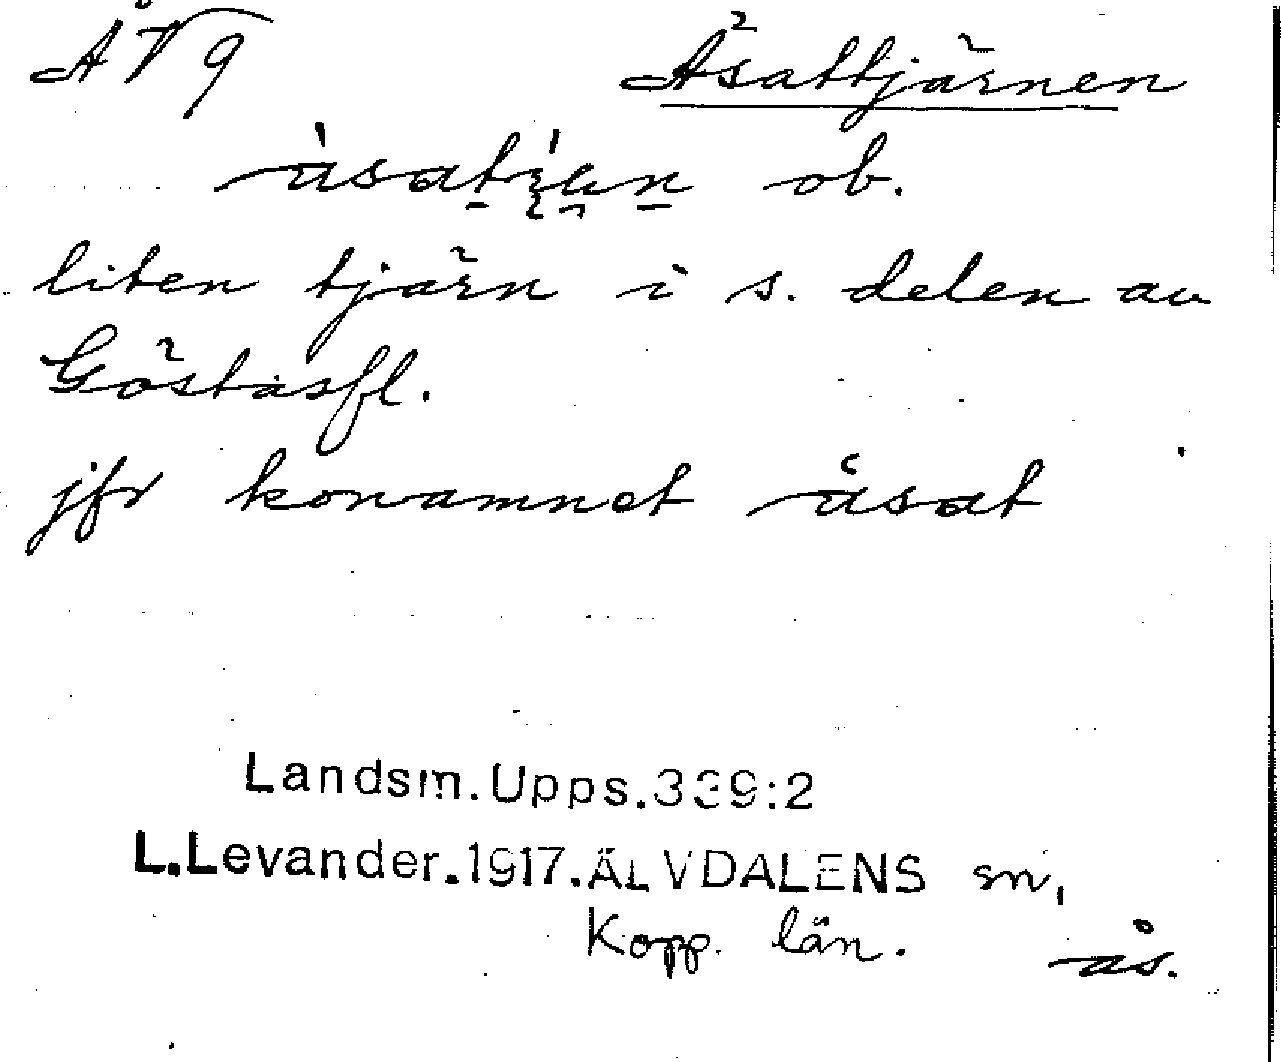 ÅV9 Åsattjärnen
ob.
liten tjärn i s. delen av
Göstasfl.
jfr konamnet åsat
Landsm.Upps.339:2
L.Levander.1917.ÄLVDALENS sn,
Kopp. län.
ås.